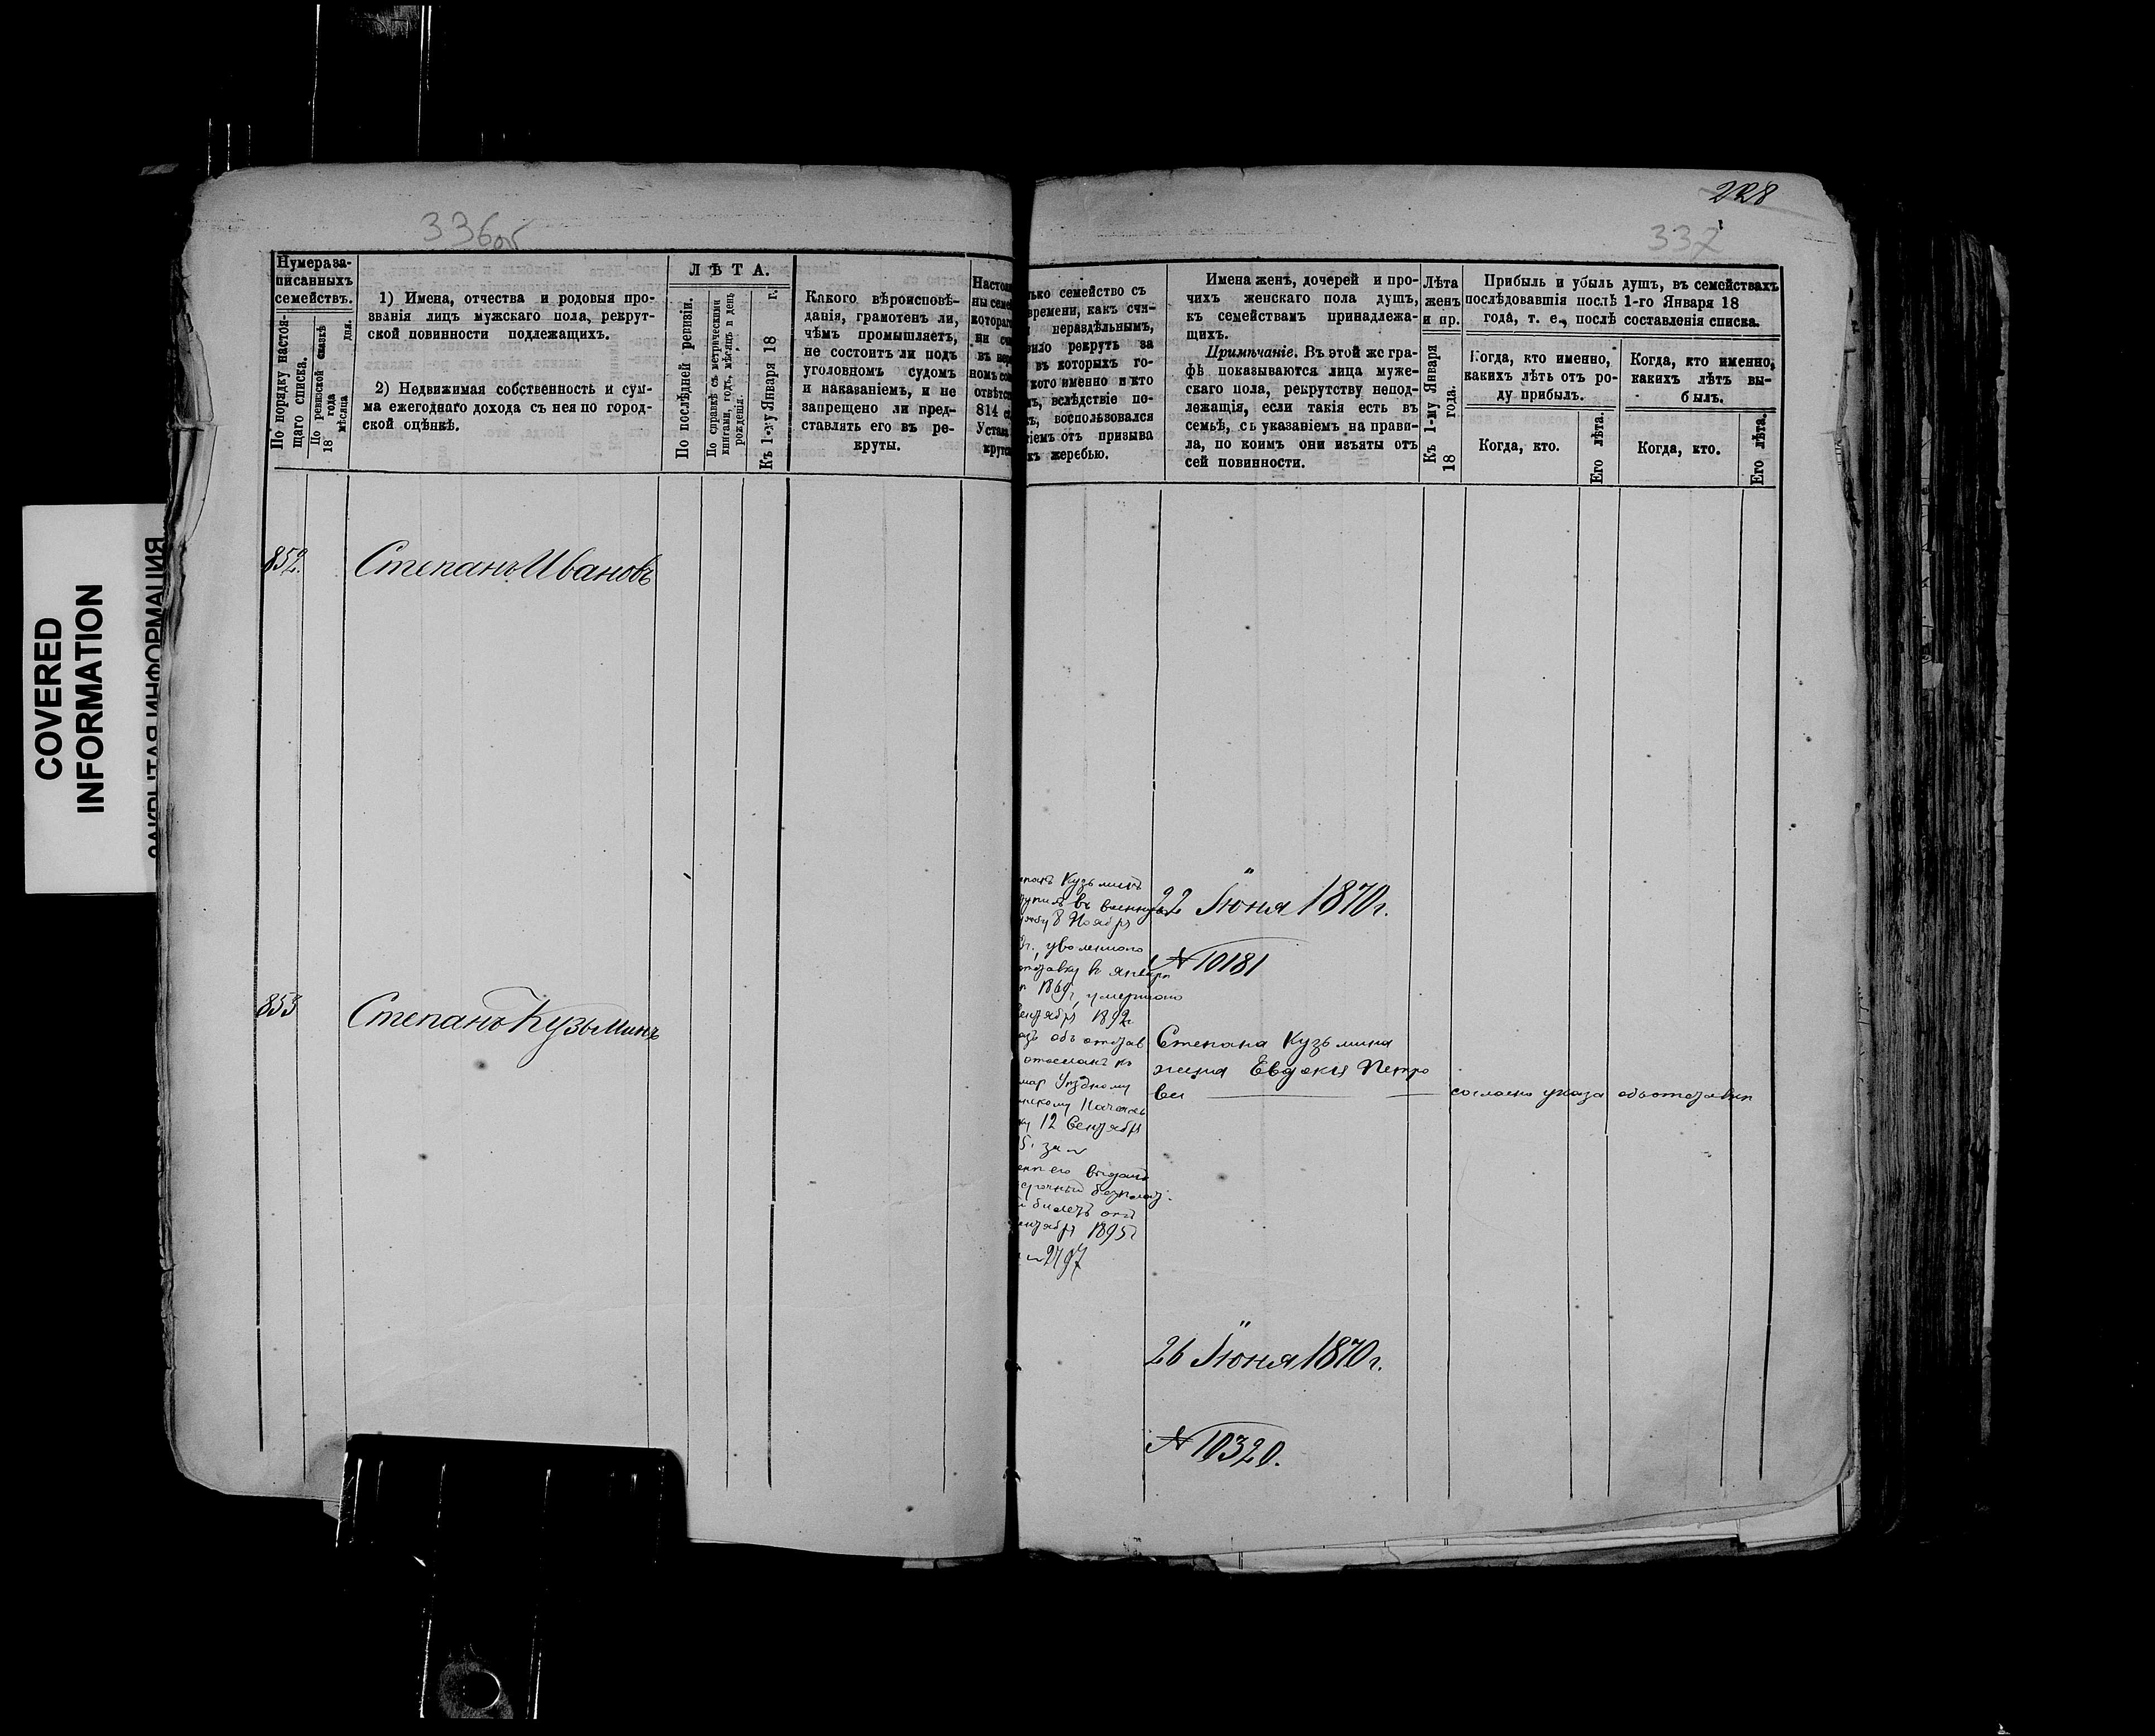 COVERED
INFORMATION
336об
Нумера за-
писанныхъ
семействъ.
По порядку настоя-
щаго списка.
По ревизской сказкѣ
18 года
мѣсяца дня.
1) Имена, отчества и родовыя про-
званія лицъ мужскаго пола, рекрут-
ской повинности подлежащихъ.
2) Недвижимая собственность и сум-
ма ежегоднаго дохода съ нея по город-
ской оцѣнкѣ.
ЛѢТА.
По послѣдней ревизіи.
По справкѣ съ метрическими
книгами, годъ, мѣсяцъ и день
рожденія.
Къ 1-му Января 18 г.
Какого вѣроисповѣ-
данія, грамотенъ ли,
чѣмъ промышляетъ,
не состоитъ ли подъ
уголовномъ судомъ
и наказаніемъ, и не
запрещено ли пред-
ставлять его въ ре-
круты.
852.
Степанъ Ивановъ
853
Степанъ Кузьминъ
228
337
семейство съ
времени, какъ счи-
нераздѣльнымъ,
рекрутъ за
въ которыхъ го-
именно и кто
вслѣдствіе по-
воспользовался
отъ призыва
жеребью.
Имена женъ, дочерей и про-
чихъ женскаго пола душъ,
къ семействамъ принадлежа-
щихъ.
Примѣчаніе. Въ этой же гра-
фѣ показываются лица муже-
скаго пола, рекрутству непод-
лежащія, если такія есть въ
семьѣ, съ указаніемъ на прави-
ла, по коимъ они изъяты отъ
сей повинности.
Лѣта
женъ
и пр.
Къ 1-му Января
18 года.
Прибыль и убыль душъ, въ семействахъ
послѣдовавшія послѣ 1-го Января 18
года, т. е., послѣ составленія списка.
Когда, кто именно,
какихъ лѣтъ отъ ро-
ду прибылъ.
Когда, кто.
Его лѣта.
Когда, кто именно,
какихъ лѣтъ вы-
былъ.
Когда, кто.
Его лѣта.
Кузьминъ
въ военную
8 Ноября
уволеннаго
въ январѣ
1869г, умершаго
1892г
объ отстав
отосланъ къ
Уѣздному
Началь
12 Сентября
за №
его выданъ
билетъ отъ
1895г
№ 2797
22 Іюня 1870г.
№ 10181
Степана Кузьмина
жена Евдокія Петро
ва — согласно указа объ отставкѣ
26 Іюня 1870г.
№ 10320.